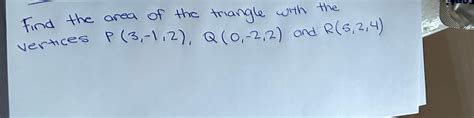 Find the area of the triangle with the
vertices P(3,-1,2), Q(0,-2,2) and R(5,2,4)